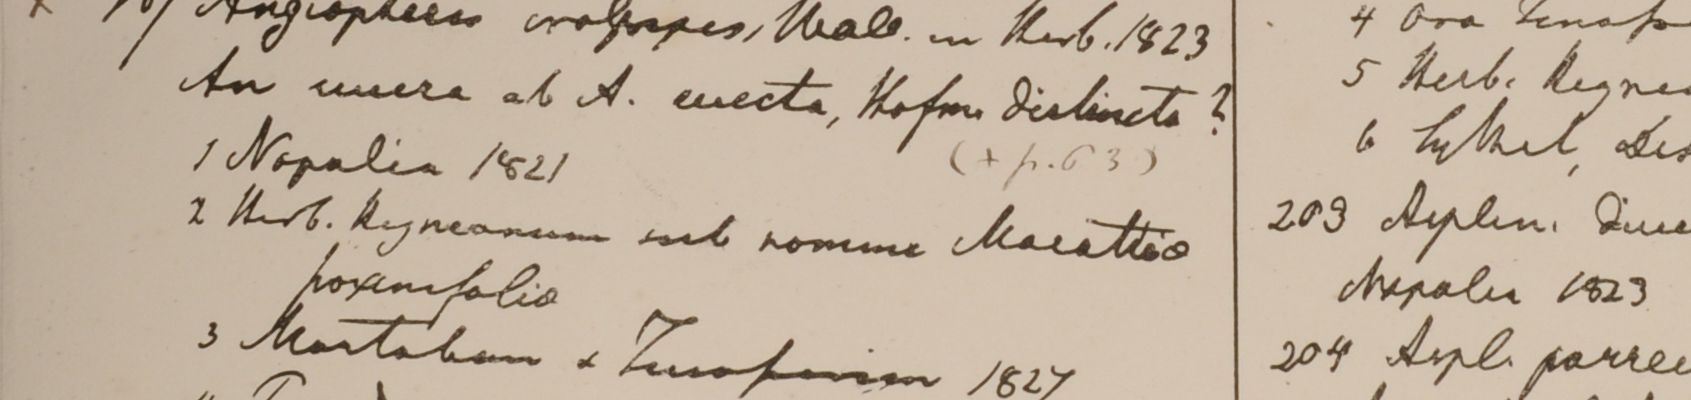 187 Angiopteris crassipes, Wall. in Herb. 1823
An vera ab A. evecta, Hofm. distincta?
(+ p. 63)
1 Napalia 1821
2 Herb. Heyneanum sub nomine Marattiae
fraxinifoliae
3 Martaban & Tenasserim 1827
4 Ora
5 Herb. Heynea
6 Sylhet,
203 Asplen.
Napalia 1823
204 Aspl.